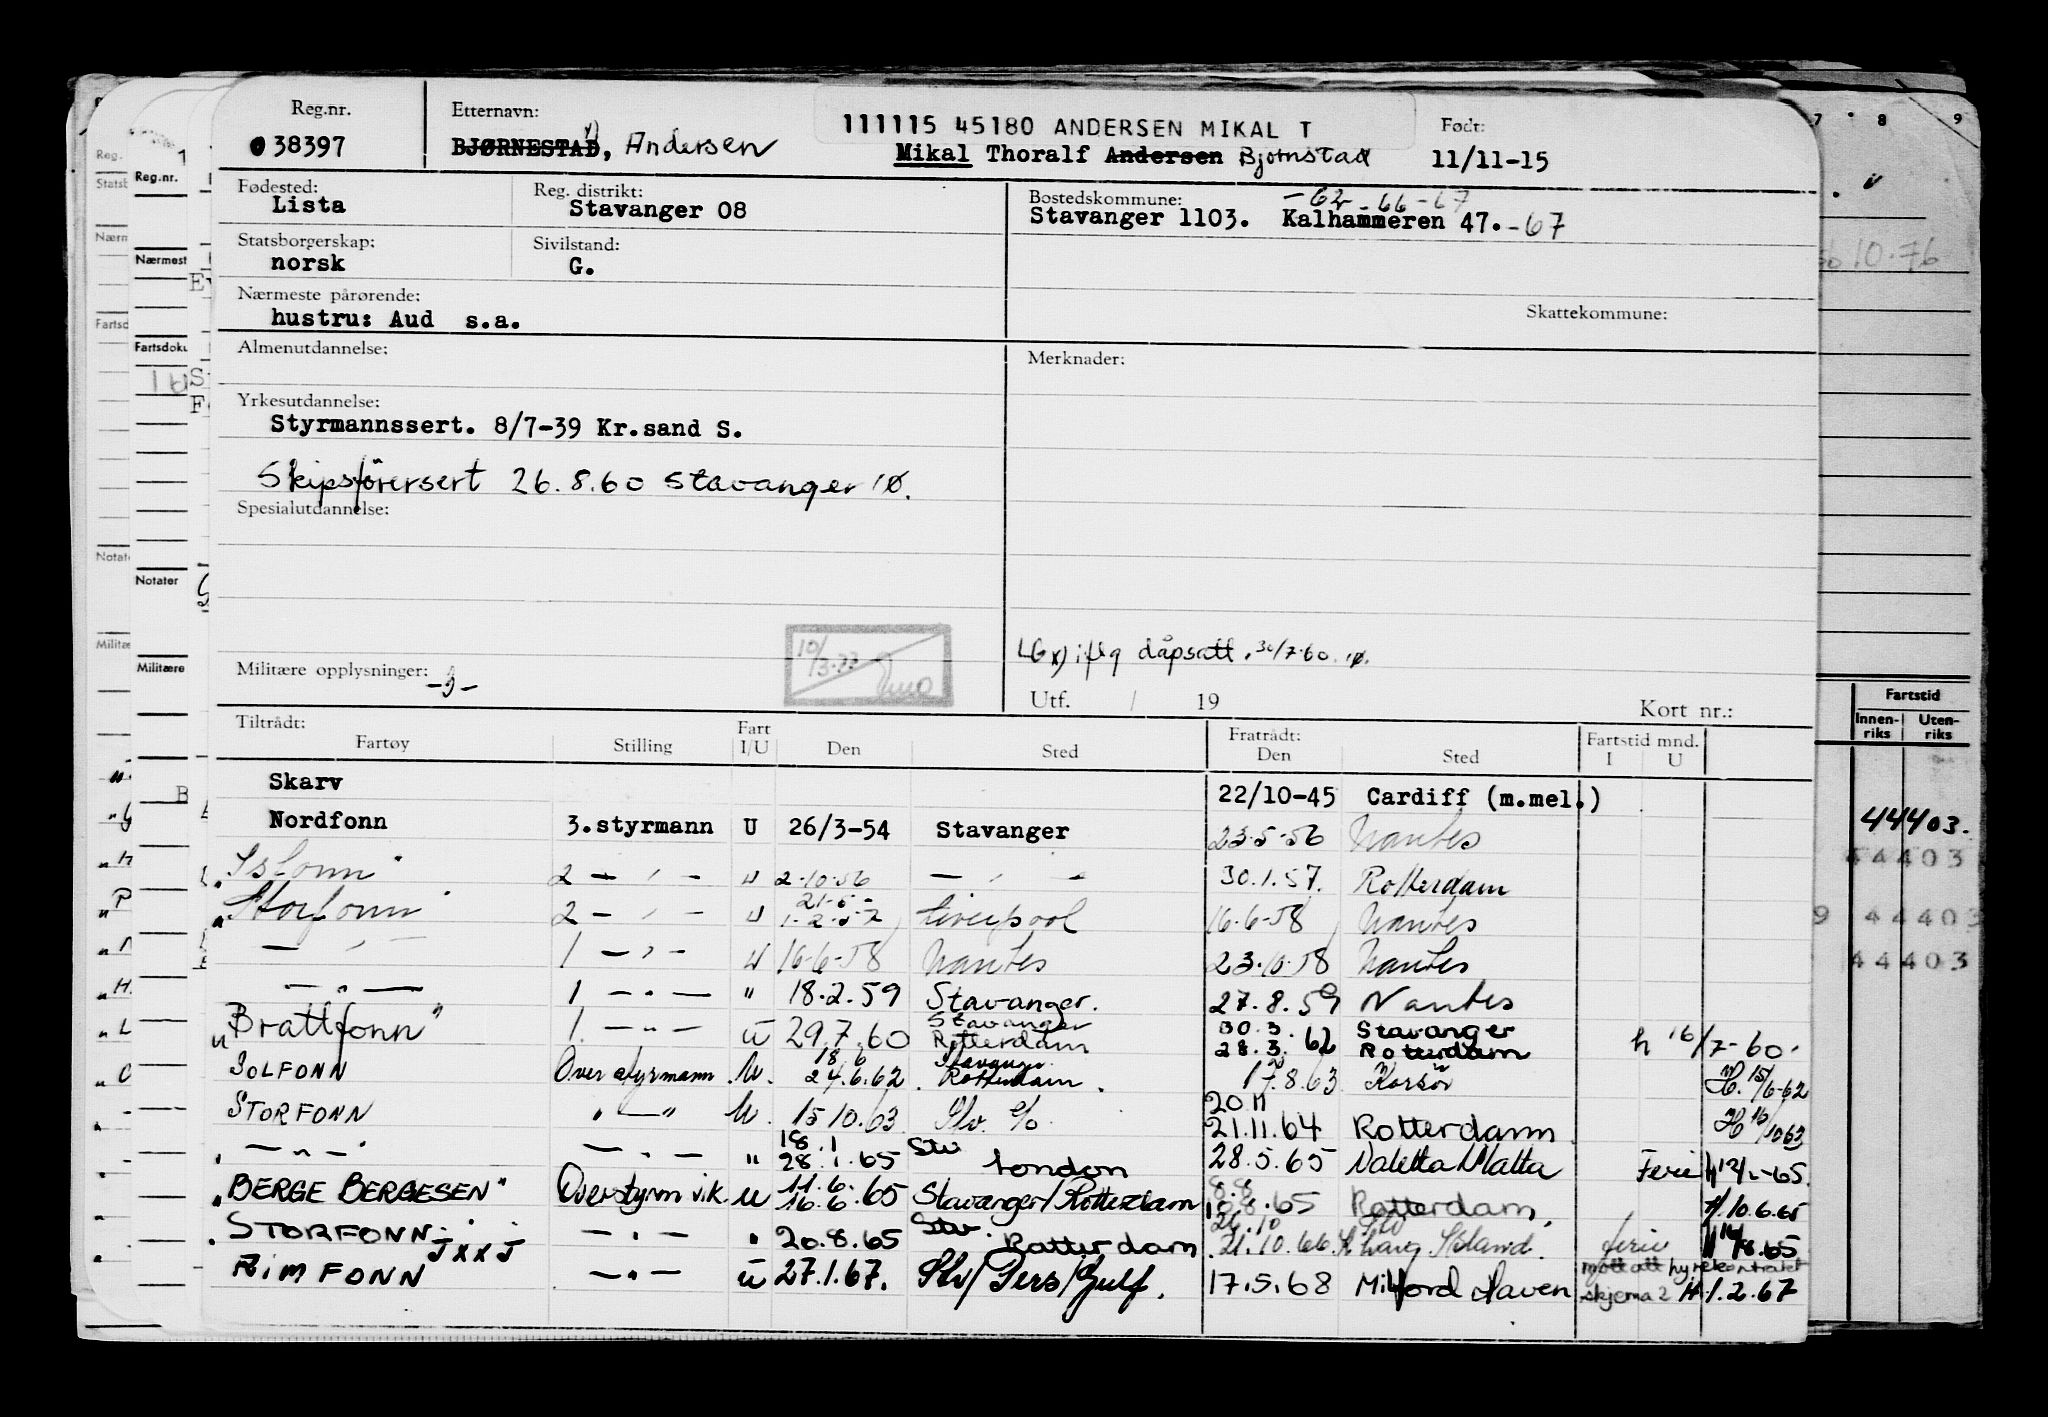 Reg.nr. Etternavn: 111115 45180 ANDERSEN MIKAL T Født:
038397 BJØRNESTAD, Andersen Mikal Thoralf Andersen Bjørnstad 11/11-15
Fødested: Reg. distrikt: Bostedskommune: -62-66-67
Lista Stavanger 08 Stavanger 1103. Kalhammeren 47. -67
Statsborgerskap: Sivilstand:
norsk G.
Nærmeste pårørende: Skattekommune:
hustru: Aud s.a.
Almenutdannelse: Merknader:
Yrkesutdannelse:
Styrmannssert. 8/7-39 Kr.sand S.
Skipsførersert 26.8.60 Stavanger
Spesialutdannelse:
dåpsatt. 30/7.60
10/3.77
Militære opplysninger: Utf. / 19 Kort nr.:
Tiltrådt: Fart Fratrådt: Fartstid mnd.
Fartøy Stilling I/U Den Sted Den Sted I U
Skarv 22/10-45 Cardiff (m.mel.)
Nordfonn 3.styrmann U 26/3-54 Stavanger 23.5-56 Nantes
"Isfonn" 2 — " — " 2-10-56 — " — 30.1.57. Rotterdam
"Storfonn" 2 — " — " 21-5- 1-2-57 Liverpool 16-6-58 Nantes
— " — 1 — " — " 16-6-58 Nantes 23-10-58 Nantes
— " — 1 — " — " 18.2.59 Stavanger. 27.8.59 Nantes
"Brattfonn" 1. — " — u 29.7.60 Stavanger Rotterdam 30.3. 28.3.62 Stavanger Rotterdam h 16/7-60.
SOLFONN Overstyrmann U. 18.6 24.6.62 Stavanger Rotterdam. 17.8.63 Korsör H. 15/6-62
STORFONN " — " U. 15 10.63 20.11 21.11.64 Rotterdam H 16/10 63
— " — — " — " 18.1 28.1.65 Stv London 28.5.65 Valetta Malta Ferie
"BERGE BERGESEN" Overstyrm vik. u 11.6. 16.6.65 Stavanger/Rotterdam 8.8 10.8.65 Rotterdam. H. 10.6.65
STORFONN — " — " 20.8.65 Stv. Rotterdam 21.10.66 Island. ferie 14/8.65
RIMFONN — " — u 27.1.67. Stv/Pers/Gulf. 17.5.68 Milford Haven mott att hyrekontrakt skjema 2 H.1.2.67
Reg.
Reg.nr.
Statsb
Nærm
Nærmest
Fartsd
Fartsdoku
Notate
Notater
Militæ
Militære
7 8 9
10.76
Fartstid
Innen-riks Uten-riks
44403.
44403
9 44403
44403